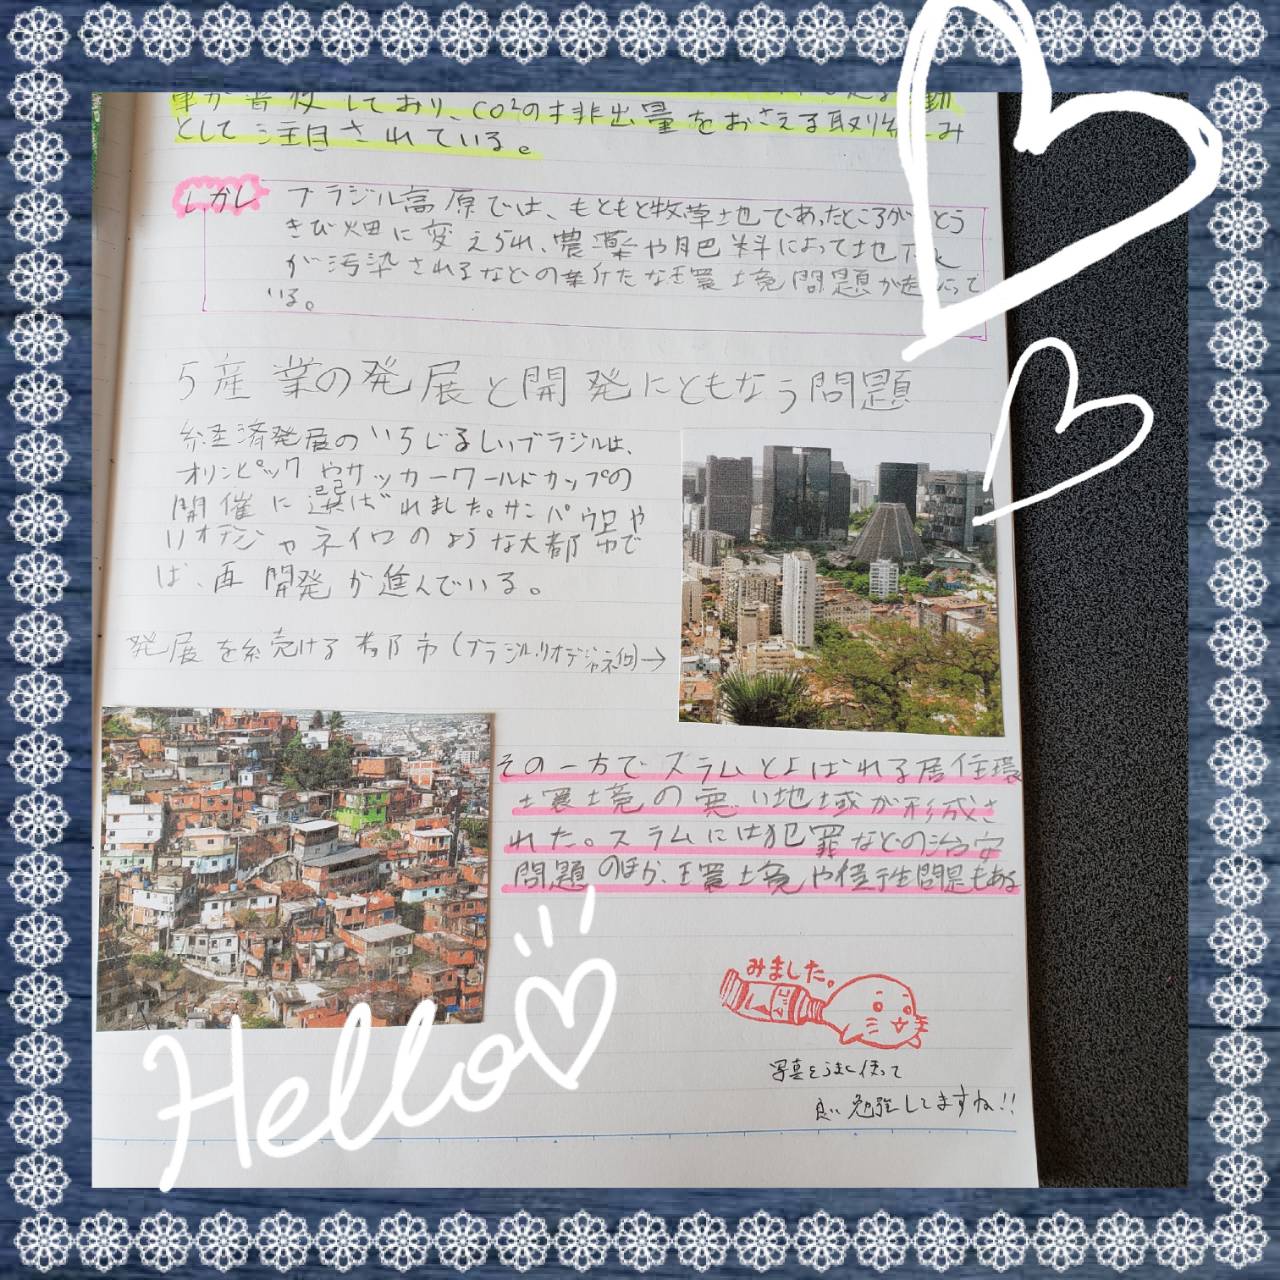 車が普及しており、CO²の排出量をおさえる取り組み
として注目されている。
しかし ブラジル高原では、もともと牧草地であったところがとう
きび畑に変えられ、農薬や肥料によって地下水
が汚染されるなどの新たな環境問題が起こって
いる。
5産業の発展と開発にともなう問題
経済発展のいちじるしいブラジルは、
オリンピックやサッカーワールドカップの
開催に選ばれました。サンパウロや
リオデジャネイロのような大都市で
は、再開発が進んでいる。
発展を続ける都市(ブラジル、リオデジャネイロ)→
その一方でスラムとよばれる居住環
環境の悪い地域が形成さ
れた。スラムには犯罪などの治安
問題のほか、環境や衛生問題もある
みました。
写真をうまく使って
良い勉強してますね!!
Hello